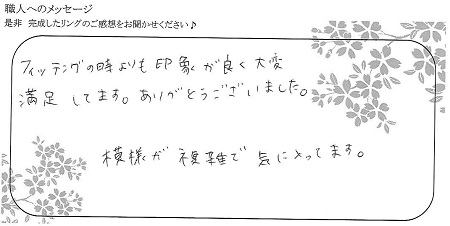 職人へのメッセージ
是非 完成したリングのご感想をお聞かせください♪
フィッティングの時よりも印象が良く大変
満足してます。ありがとうございました。
模様が複雑で気に入ってます。